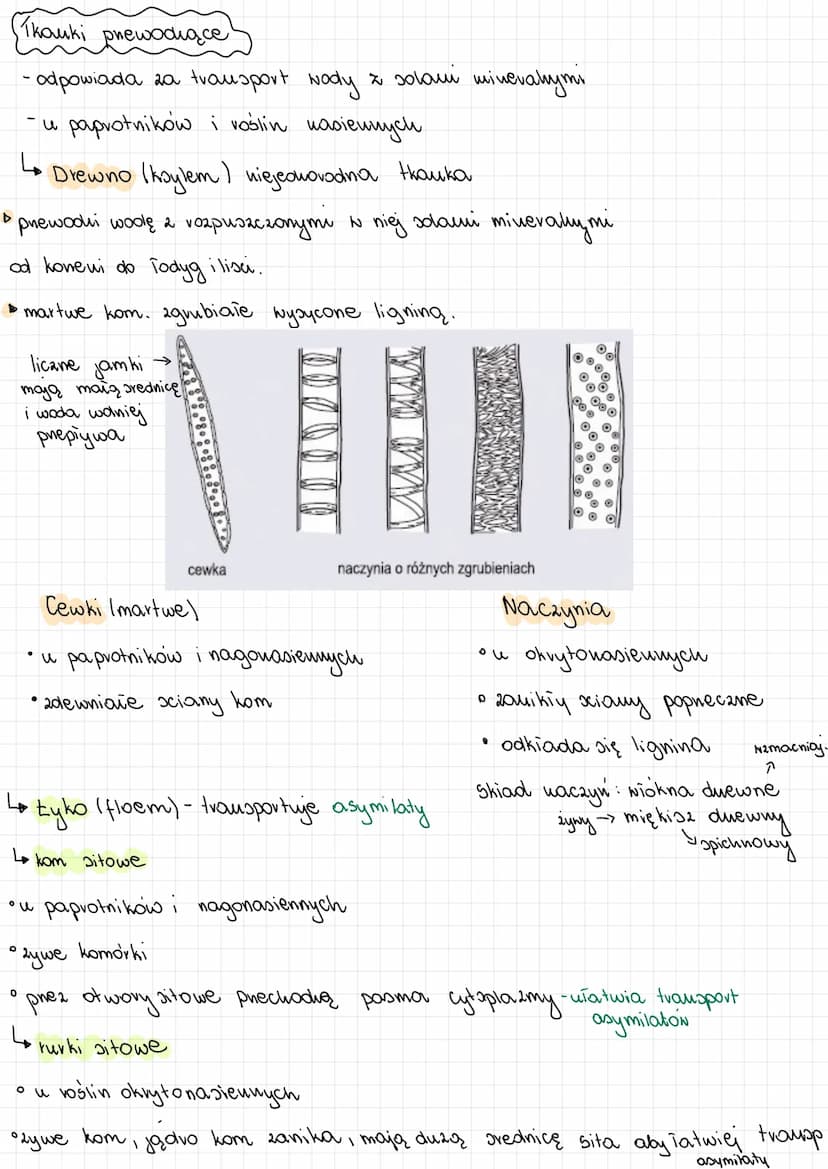 Tkanki przewodzące
- odpowiada za transport wody z solami mineralnymi
- u paprotników i roślin nasiennych
↳ Drewno (ksylem) niejednorodna tkanka
▹ przewodzi wodę z rozpuszczonymi w niej solami mineralnymi
od korzeni do łodyg i liści.
▸ martwe kom. zgrubiałe wysycone ligniną.
liczne jamki →
mają małą średnicę
i woda wolniej
przepływa
cewka
naczynia o różnych zgrubieniach
Cewki (martwe)
• u paprotników i nagonasiennych
• zdewniałe ściany kom
Naczynia
• u okrytonasiennych
• zanikły ściany poprzeczne
• odkłada się lignina
wzmacniaj.
skład naczyń: włókna drzewne
żywy → miękisz drzewny
↘ spichrzowy
↳ Łyko (floem) - transportuje asymilaty
↳ kom sitowe
• u paprotników i nagonasiennych
• żywe komórki
• przez otwory sitowe przechodzą pasma cytoplazmy - ułatwia transport
asymilatów
↳ rurki sitowe
• u roślin okrytonasiennych
• żywe kom, jądro kom zanika, mają dużą średnicę sita aby łatwiej transp
asymilaty